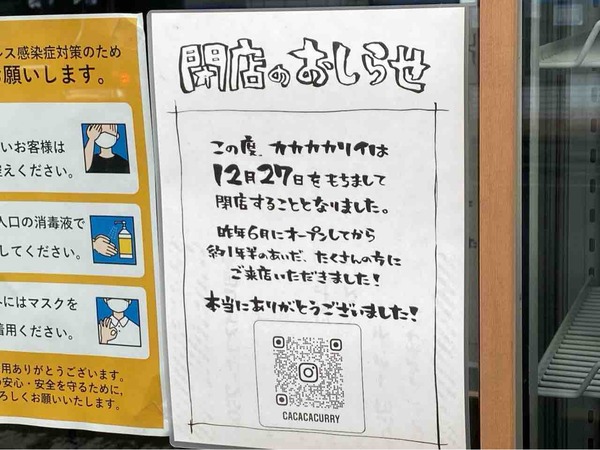 ルス感染症対策のため
お願いします。
いお客様は
控えください。
入口の消毒液で
してください。
にはマスクを
着用ください。
用ありがとうございます。
安心・安全を守るために、
ろしくお願いいたします。
閉店のおしらせ
この度、カカカカリイは
12月27日をもちまして
閉店することとなりました。
昨年6月にオープンしてから
約1年半のあいだ、たくさんの方に
ご来店いただきました!
本当にありがとうございました!
CACACACURRY